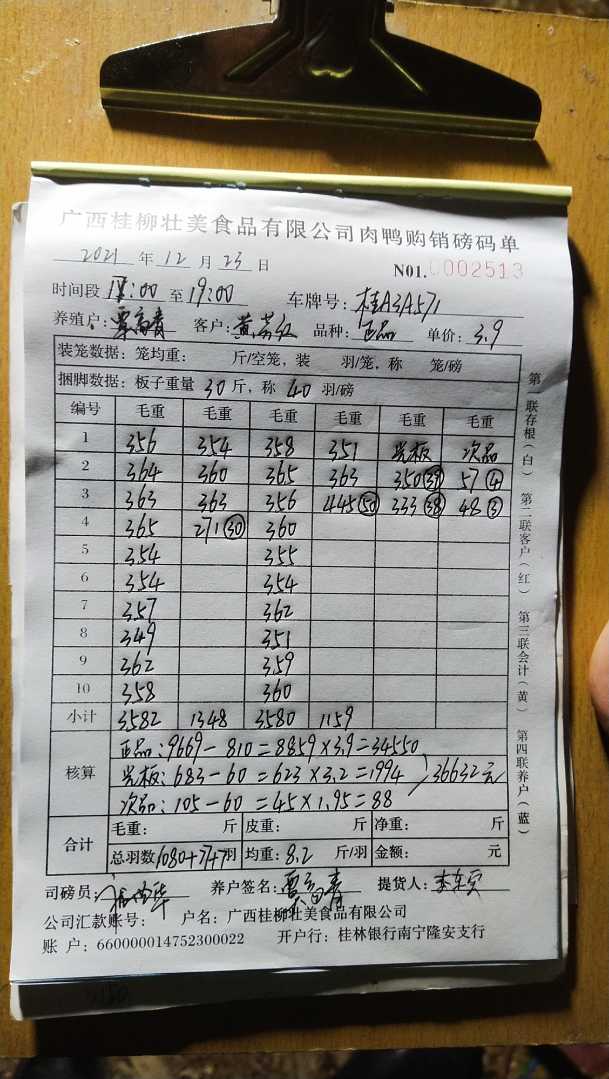 广西桂柳壮美食品有限公司肉鸭购销磅码单
2021 年 12 月 23 日 N01.0002513
时间段 18:00 至 19:00 车牌号: 桂A3A571
养殖户: 覃高青 客户: 品种: 正品 单价: 3.9
装笼数据: 笼均重: 斤/空笼, 装 羽/笼, 称 笼/磅
捆脚数据: 板子重量 30 斤, 称 40 羽/磅
编号 毛重 毛重 毛重 毛重 毛重 毛重
1 356 354 358 351 光板 次品
2 364 360 365 363 350(39) 57(4)
3 363 363 356 445(50) 333(38) 48(3)
4 365 271(30) 360
5 354 355
6 354 354
7 357 362
8 349 351
9 362 359
10 358 360
小计 3582 1348 3580 1159
核算
正品: 9669-810=8859×3.9=34550
光板: 683-60=623×3.2=1994 } 36632元
次品: 105-60=45×1.95=88
合计
毛重: 斤 皮重: 斤 净重: 斤
总羽数 1080+77+7羽 均重: 8.2 斤/羽 金额: 元
司磅员: 养户签名: 覃高青 提货人:
公司汇款账号: 户名: 广西桂柳壮美食品有限公司
账 户: 660000014752300022 开户行: 桂林银行南宁隆安支行
第一联存根(白) 第二联客户(红) 第三联会计(黄) 第四联养户(蓝)